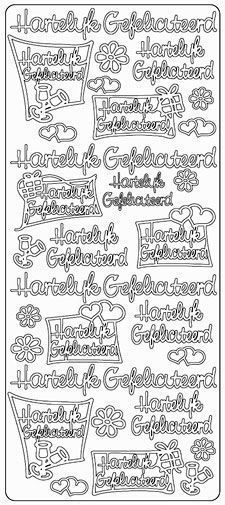 Hartelijk Gefeliciteerd
Hartelijk
Gefeliciteerd
Hartelijk
Gefeliciteerd
Hartelijk
Gefeliciteerd
Hartelijk Gefeliciteerd
Hartelijk
Gefeliciteerd
Hartelijk
Gefeliciteerd
Hartelijk
Gefeliciteerd
Hartelijk
Gefeliciteerd
Hartelijk Gefeliciteerd
Hartelijk
Gefeliciteerd
Hartelijk
Gefeliciteerd
Hartelijk Gefeliciteerd
Hartelijk
Gefeliciteerd
Hartelijk
Gefeliciteerd
Hartelijk
Gefeliciteerd